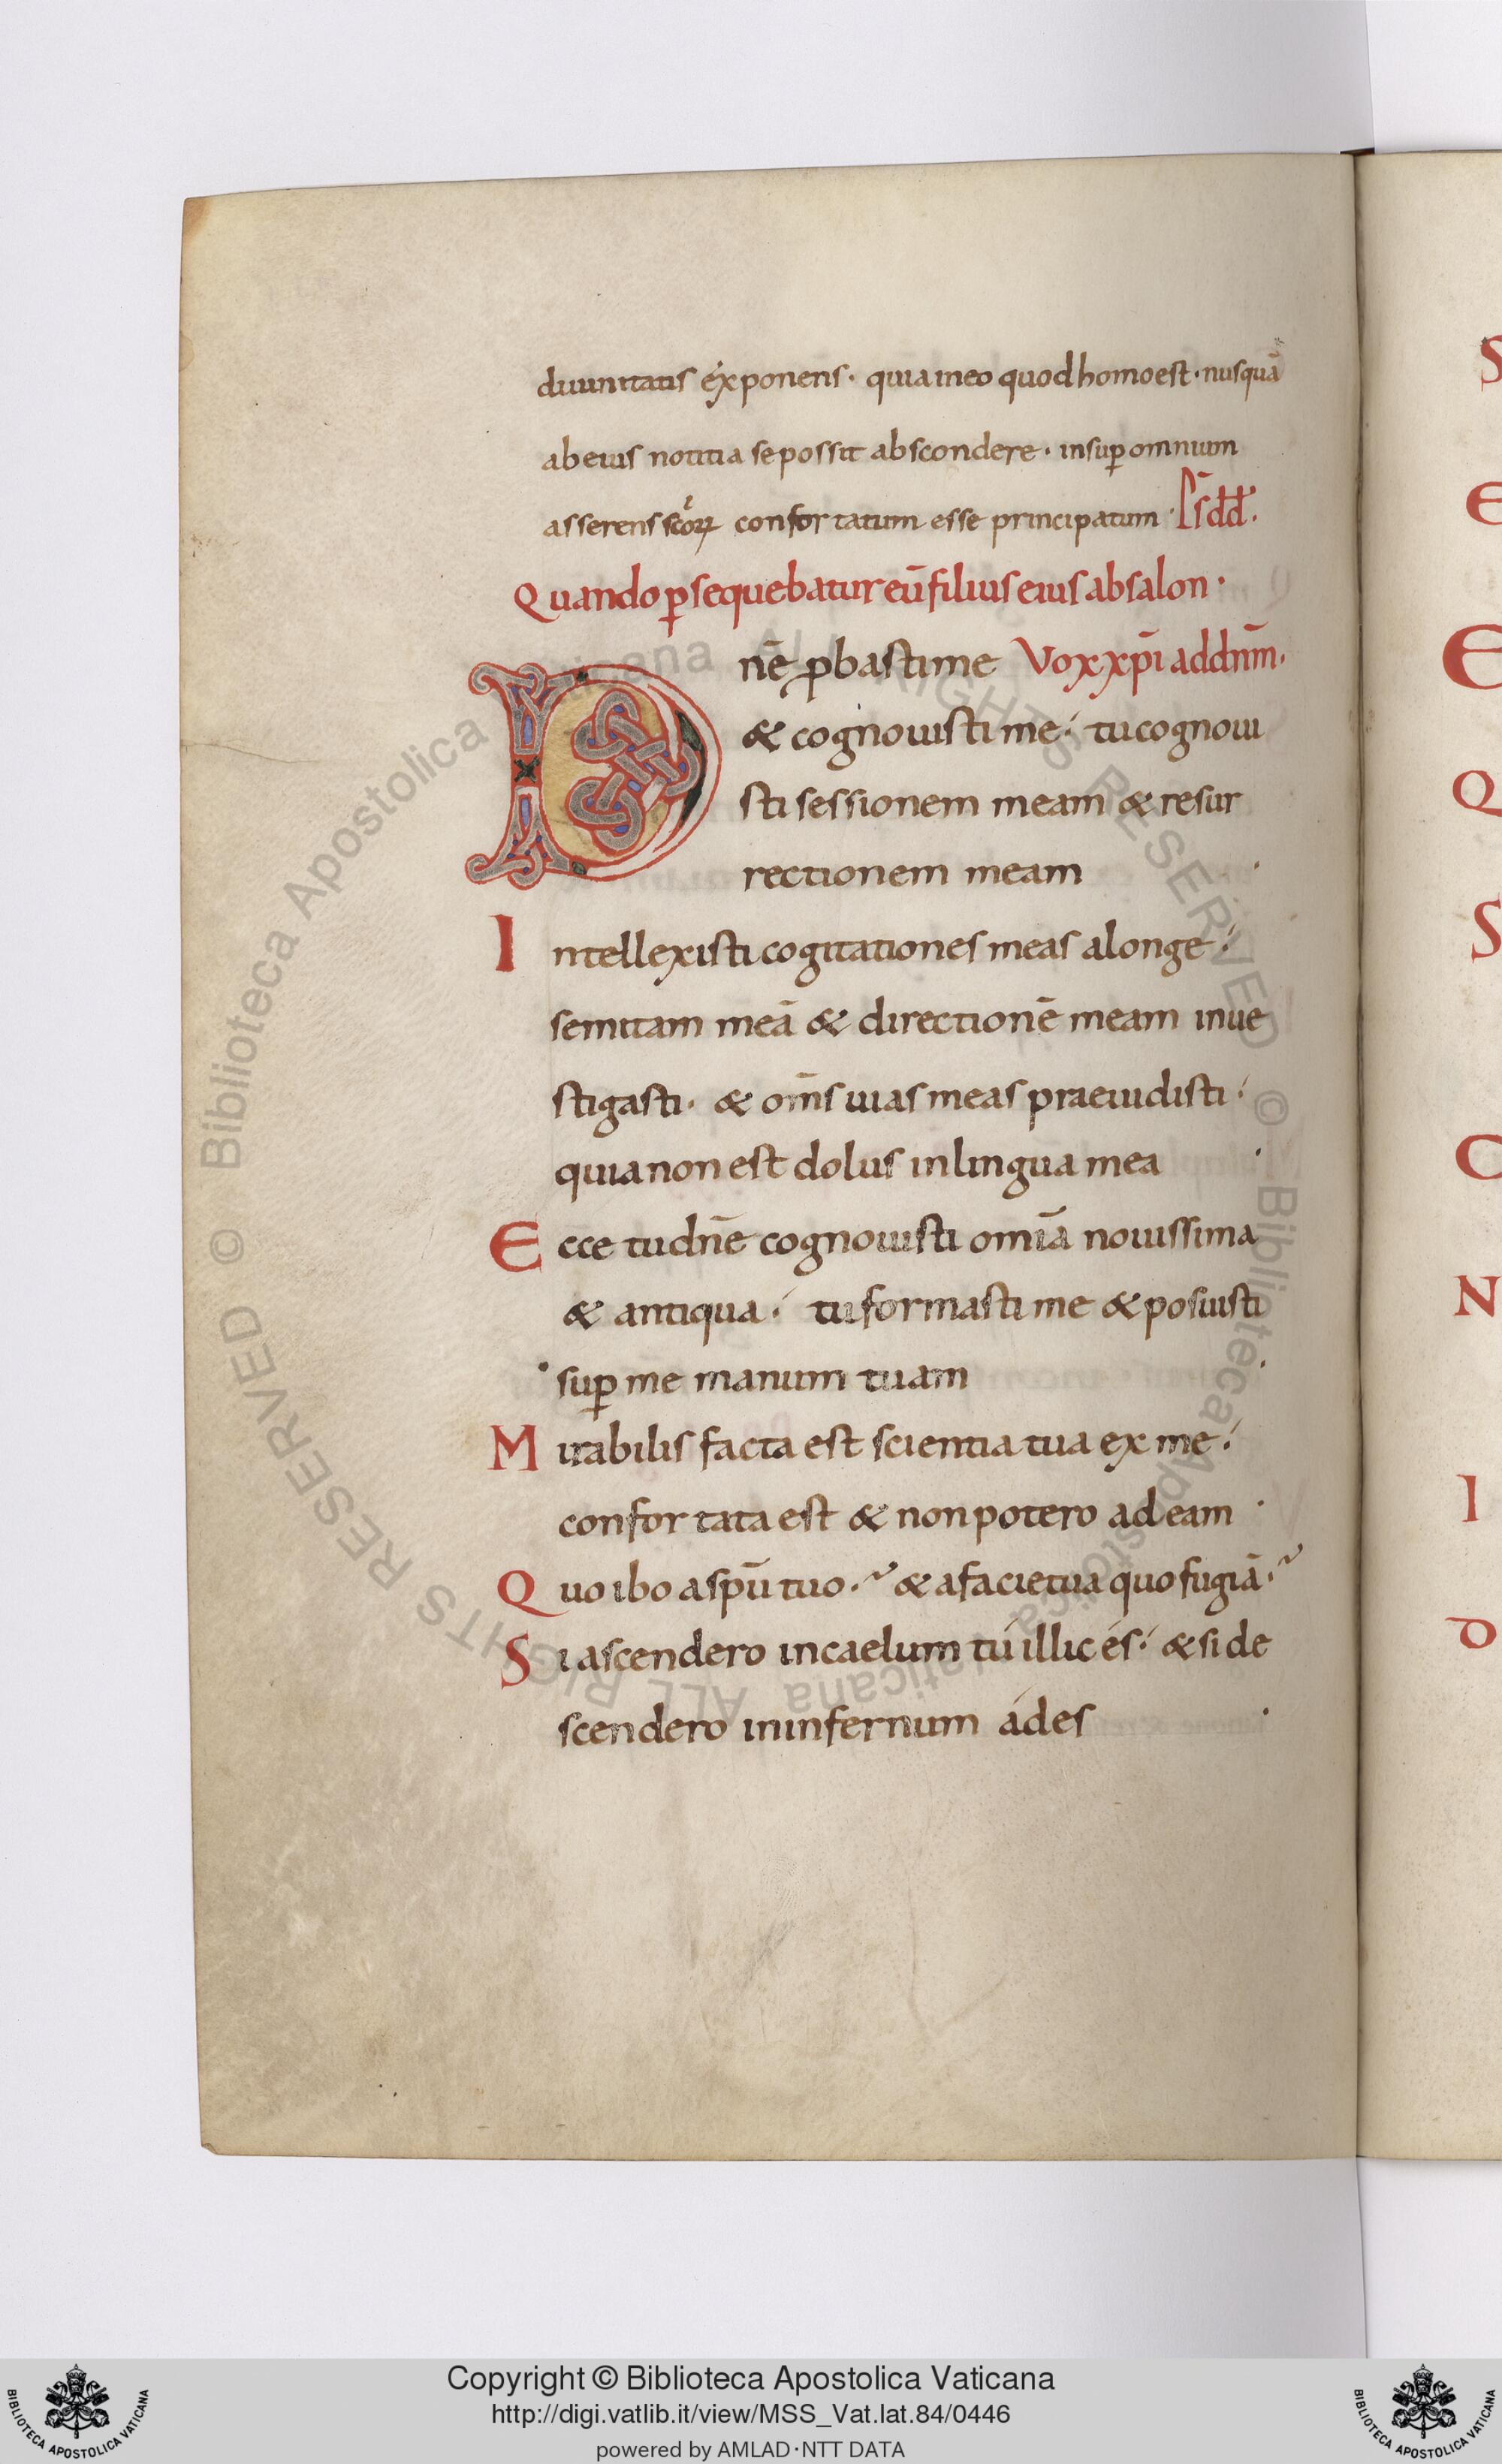 diuinitatis éxponens· quia in eo quod homo est· nusquā
ab eius notitia se possit abscondere· insup omnium
asserens scōrꝝ confortatum esse principatum· P̄s dd̄·
Quando ꝑsequebatur eū filius eius absalon·
Dnē ꝓbasti me Vox xp̄i ad dn̄m·
& cognouisti me·́ tu cognoui
sti sessionem meam & resur
rectionem meam ·
Intellexisti cogitationes meas a longe·́
semitam meā & directionē meam inue
stigasti· & om̄s uias meas praeuidisti·́
quia non est dolus in lingua mea ·
Ecce tu dnē cognouisti om̄ia nouissima
& antiqua·́ tu formasti me & posuisti
suꝑ me manum tuam ·
Mirabilis facta est scientia tua ex me·́
confortata est & non potero ad eam ·
Quo ibo a spū tuo·~ & a facie tua quo fugiā·~
Si ascendero in caelum tú illic és·́ & si de
scendero in infernum ádes ·
S
E
E
Q
S
C
N
I
D
© Biblioteca Apostolica Vaticana ALL RIGHTS RESERVED © Biblioteca Apostolica Vaticana ALL RIGHTS RESERVED
Copyright © Biblioteca Apostolica Vaticana
http://digi.vatlib.it/view/MSS_Vat.lat.84/0446
powered by AMLAD·NTT DATA
BIBLIOTECA APOSTOLICA VATICANA
BIBLIOTECA APOSTOLICA VATICANA